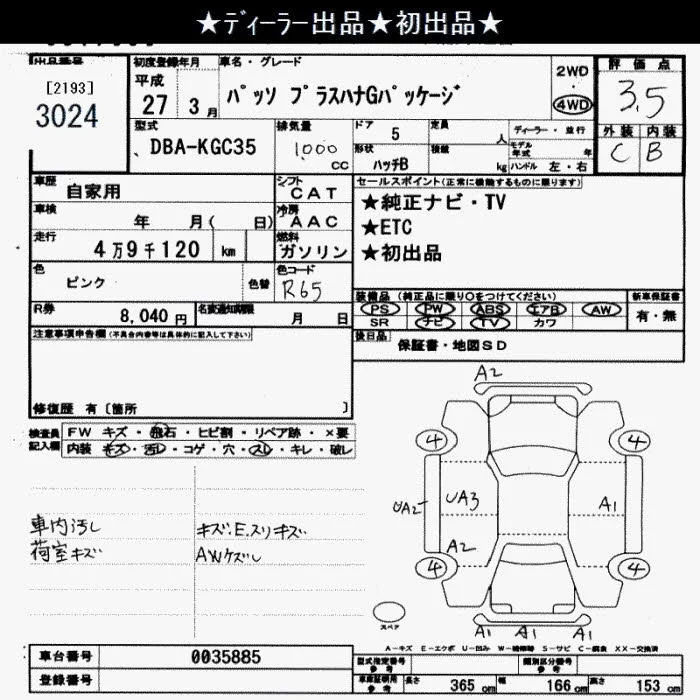 ★ディーラー出品★初出品★
出品番号
[2193]
3024
初度登録年月
平成
27 3月
車名・グレード
パッソ プラスハナGパッケージ
2WD
・
4WD
評価点
3.5
外装 内装
C B
型式
DBA-KGC35
排気量
1,000
CC
ドア 5
定員 人
ディーラー・並行
形状
ハッチB
積載 kg
モデル年式 年
ハンドル 左・右
車歴
自家用
シフト
CAT
車検
年 月( 日)
冷房
AAC
走行
4万9千120 km
燃料
ガソリン
色
ピンク
色替
色コード
R65
R券
8,040円
名変通知期限
月 日
セールスポイント(正常に機能するものに限ります)
★純正ナビ・TV
★ETC
★初出品
装備品 (純正品に限り○をつけてください)
新車保証書
PS PW ABS エアB AW
有・無
SR ナビ TV カワ
後日品
保証書・地図SD
注意事項申告欄(不具合内容等は具体的に記入して下さい)
修復歴 有〔箇所 〕
検査員記入欄
FW キズ・飛石・ヒビ割・リペア跡・×要
内装 キズ・汚レ・コゲ・穴・スレ・キレ・破レ
車内汚し
荷室キズ
キズ.E.スリキズ
AWケズレ
A2
4
4
UA2
UA3
A1
A2
4
4
A1 A1 A1
スペア
A-キズ E-エクボ U-凹み W-補修跡 S-サビ C-腐食 XX-交換済
車台番号
0035885
登録番号
型式指定番号
参考
類別区分番号
参考
車庫証明用
参考
長さ 365 cm
幅 166 cm
高さ 153 cm